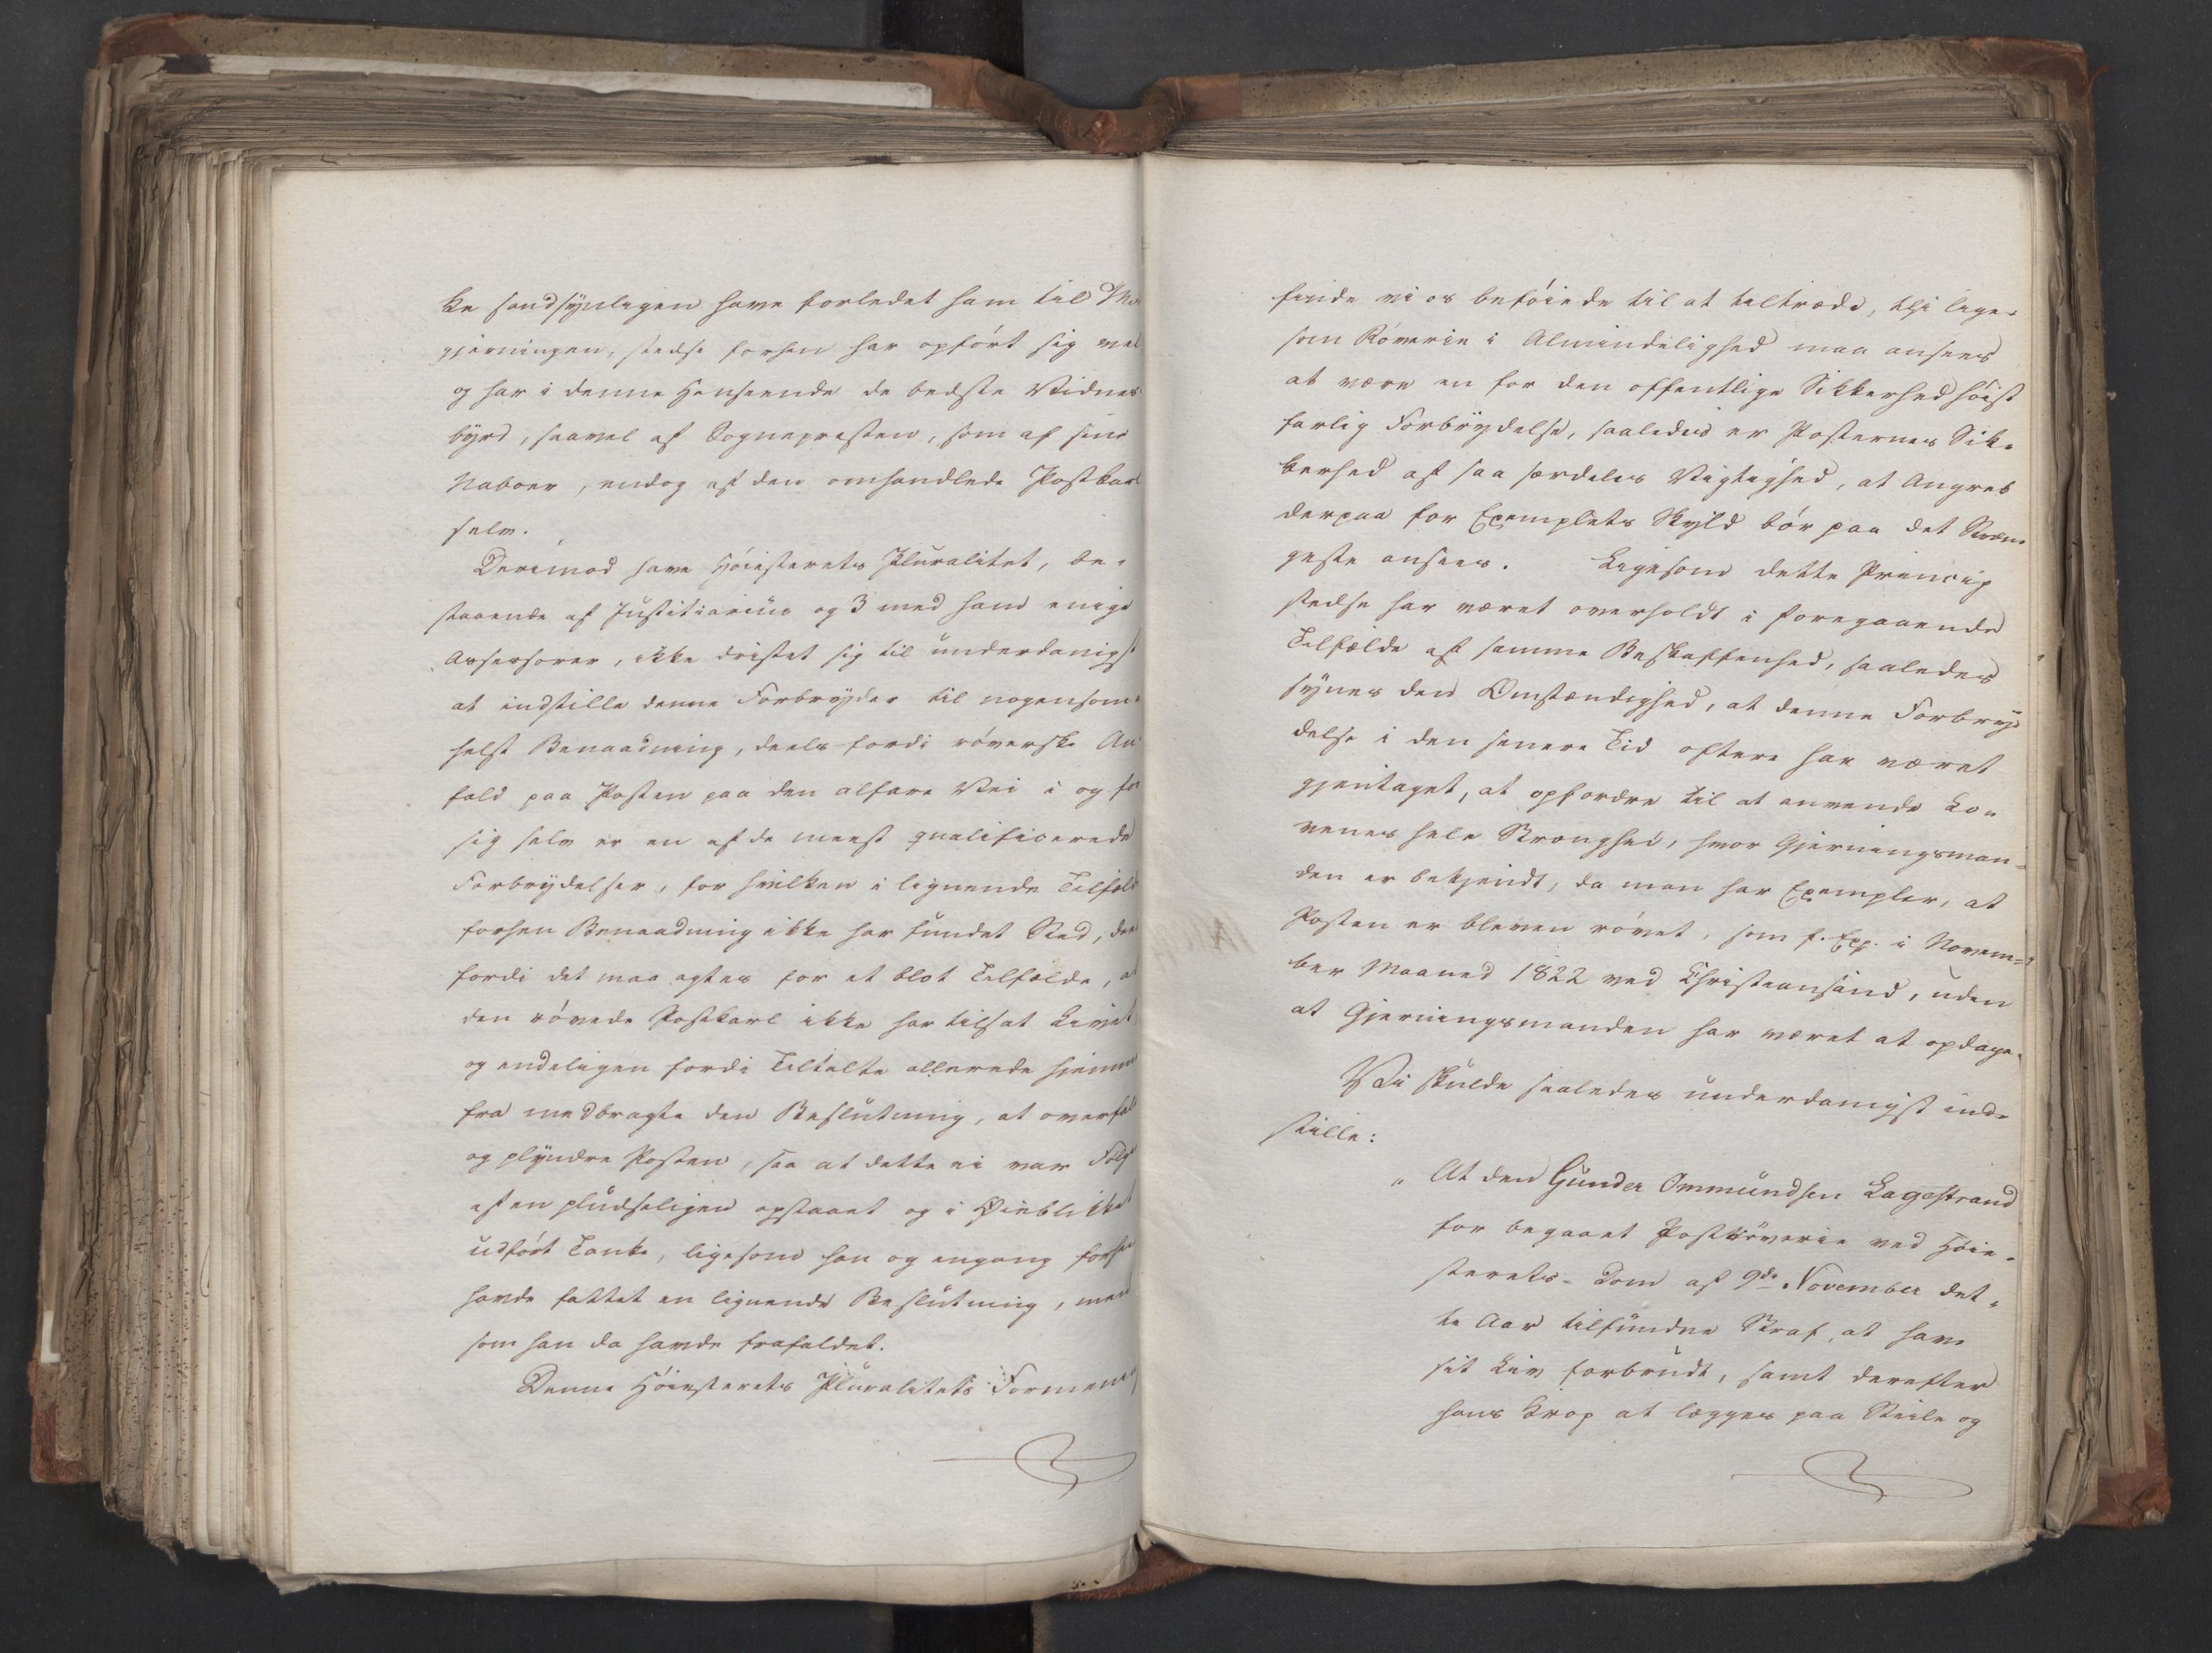 ke sandsynligen have forledet ham til
gjerningen, stedse forhen har opført sig vel
og har i denne Henseende de bedste Vidnes-
byrd, saavel af Sognepresten, som af sine
Naboer, endog af den omhandlede Postkarl
selv.
Derimod have Høiesterets Pluralitet, be-
staaende af Justitiarius og 3 med ham enige
Assessorer, ikke dristet sig til underdanigst
at indstille denne Forbryder til nogensom-
helst Benaadning, deels fordi røverske An-
fald paa Posten paa den alfare Vei i og for
sig selv er en af de meest qualificerede
Forbrydelser, for hvilken i lignende Tilfælde
forhen Benaadning ikke har fundet Sted, deels
fordi det maa agtes for et blot Tilfælde, at
den røvede Postkarl ikke har tilsat Livet
og endeligen fordi Tiltalte allerede hjemme
fra medbragte den Beslutning, at overfalde
og plyndre Posten, saa at dette ei var Følge
af en pludseligen opstaaet og i Øieblikket
udført Tanke, ligesom han og engang forhen
havde fattet en lignende Beslutning, men
som han da havde frafaldet.
Denne Høiesterets Pluralitets Formening
finde vi os beføiede til at tiltræde, thi lige-
som Røverie i Almindelighed maa ansees
at være en for den offentlige Sikkerhed høist
farlig Forbrydelse, saaledes er Posternes Sik-
kerhed af saa særdeles Vigtighed, at Angreb
derpaa for Exemplets Skyld bør paa det Stræn-
geste ansees. Ligesom dette Princip
stedse har været overholdt i foregaaende
Tilfælde af samme Beskaffenhed, saaledes
synes den Omstændighed, at denne Forbry-
delse i den senere Tid oftere har været
gjentaget, at opfordre til at anvende Lo-
venes hele Strenghed, hvor Gjerningsman-
den er bekjendt, da man har Exempler, at
Posten er bleven røvet, som f. Ex. i Novem-
ber Maaned 1822 ved Christiansand, uden
at Gjerningsmanden har været at opdage.
Vi skulde saaledes underdanigst ind-
stille:
„At den Gunder Ommundsen Lagestrand
for begaaet Postrøverie ved Høie-
sterets-Dom af 9de November det-
te Aar tilfundne Straf, at have
sit Liv forbrudt, samt derefter
hans Krop at lægges paa Steile og